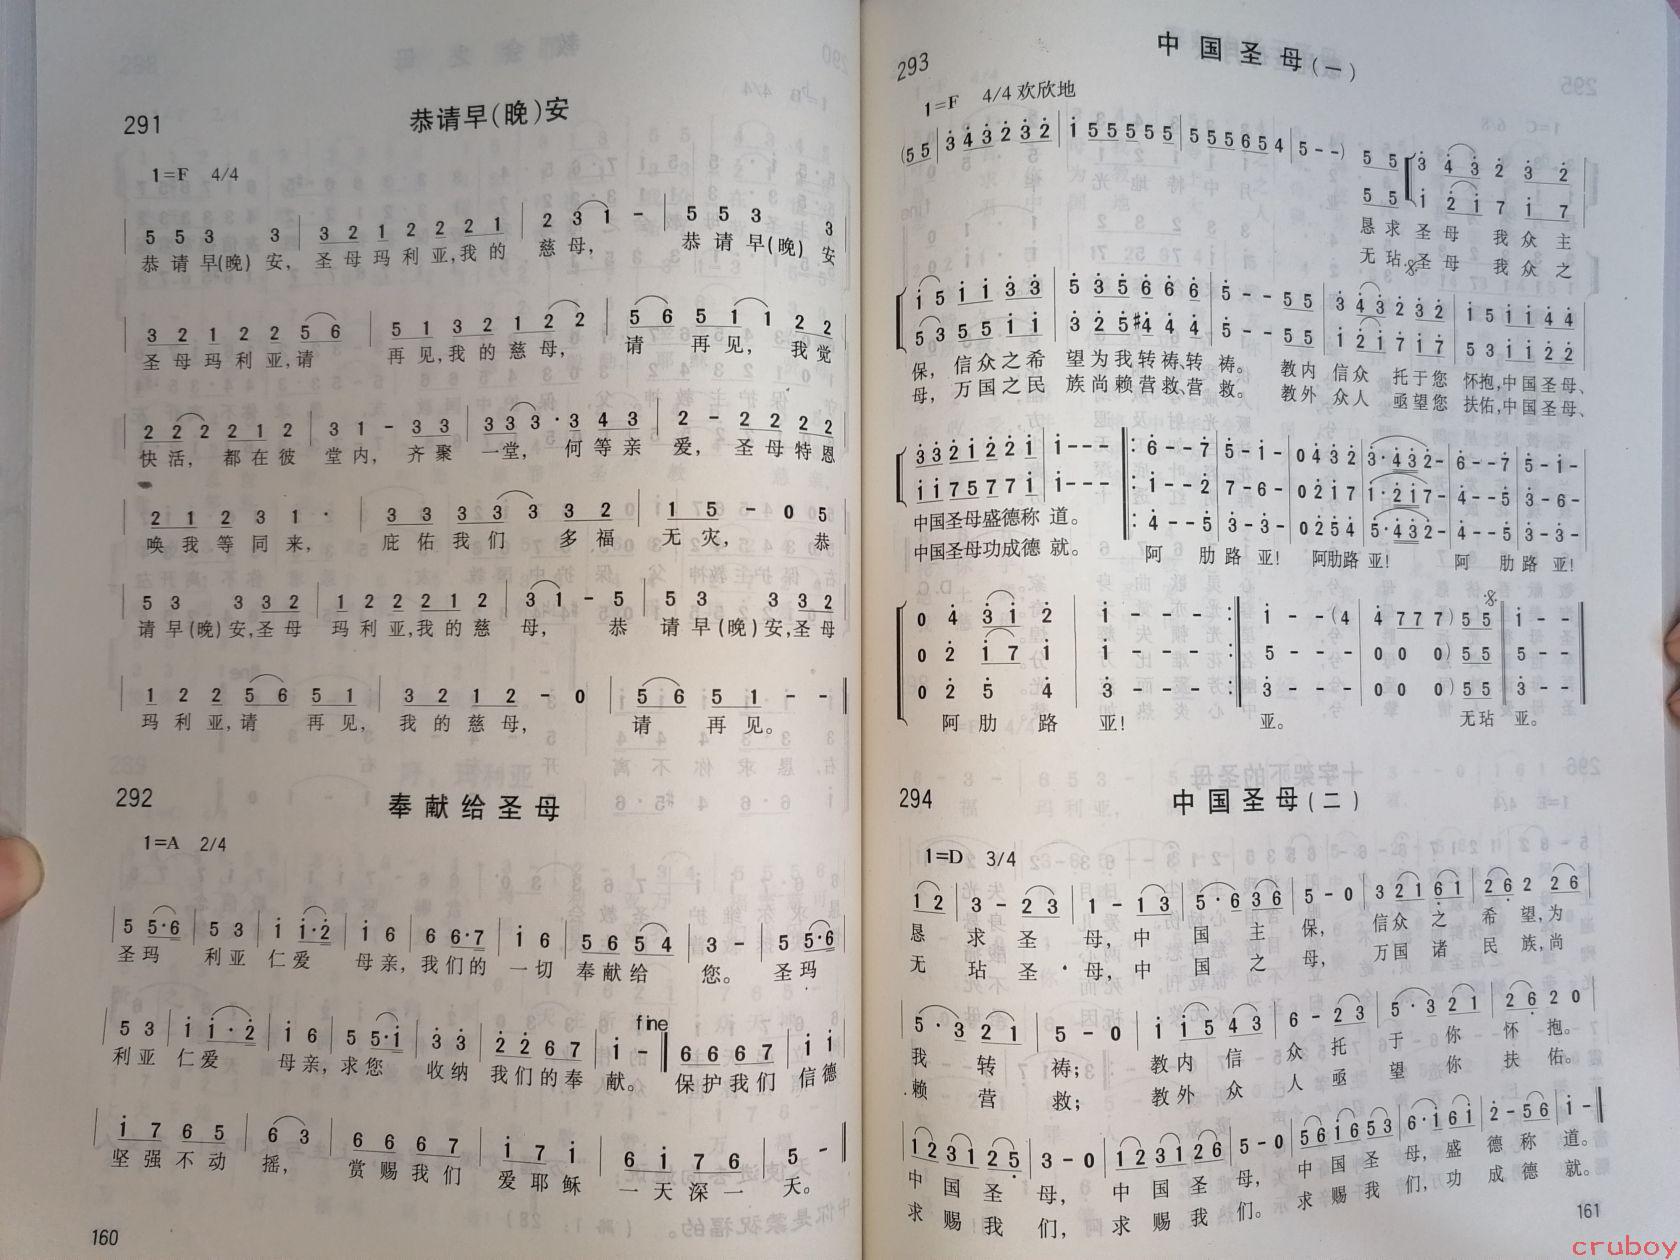 291
恭请早(晚)安
1=F 4/4
5 5 3 3 | 3 2 1 2 2 2 1 | 2 3 1 - | 5 5 3 3
恭请早(晚)安,圣母玛利亚,我的 慈母, 恭请早(晚)安
3 2 1 2 2 5 6 | 5 1 3 2 1 2 2 | 5 6 5 1 1 2 2
圣母玛利亚,请 再见,我的慈母, 请 再见, 我觉
2 2 2 2 1 2 | 3 1 - 3 3 | 3 3 3 · 3 4 3 | 2 - 2 2 2 2
快活, 都在彼 堂内, 齐聚 一堂, 何等亲 爱, 圣母特恩
2 1 2 3 1 · | 3 3 3 3 3 3 2 | 1 5 - 0 5
唤我等同来, 庇佑我们 多福 无灾, 恭
5 3 3 3 2 | 1 2 2 2 1 2 | 3 1 - 5 | 5 3 3 3 2
请早(晚)安,圣母 玛利亚,我的慈 母, 恭 请早(晚)安,圣母
1 2 2 5 6 5 1 | 3 2 1 2 - 0 | 5 6 5 1 - -
玛利亚,请 再见, 我的慈母, 请 再见。
292
奉献给圣母
1=A 2/4
5 5·6 | 5 3 | i i·2 | i 6 | 6 6·7 | i 6 | 5 6 5 4 | 3 - | 5 5·6
圣玛 利亚 仁爱 母亲,我们的 一切 奉献给 您。 圣玛
fine
5 3 | i i·2 | i 6 | 5 5·i | 3 3 | 2 2 6 7 | i - | 6 6 6 7 | i i
利亚 仁爱 母亲,求您 收纳 我们的奉 献。 保护我们 信德
i 7 6 5 | 6 3 | 6 6 6 7 | i 7 i | 6 i 7 6 | 5 -
坚强不动 摇, 赏赐我们 爱耶稣 一天深一 天。
160
293
中国圣母(一)
1=F 4/4 欢欣地
(5 5 | 3 4 3 2 3 2 | i 5 5 5 5 5 | 5 5 5 6 5 4 | 5 - -)
5 5 | 3 4 3 2 3 2
5 5 | i 2 i 7 i 7
恳求 圣母 我众主
无玷 圣母 我众之
i 5 i i 3 3 | 5 3 5 6 6 6 | 5 - - 5 5 | 3 4 3 2 3 2 | i 5 i i 4 4
5 3 5 5 i i | 3 2 5 #4 4 4 | 5 - - 5 5 | i 2 i 7 i 7 | 5 3 i i 2 2
保, 信众之希 望为我转祷、转 祷。 教内 信众 托于您 怀抱,中国圣母、
母, 万国之民 族尚赖营救、营 救。 教外 众人 亟望您 扶佑,中国圣母、
3 3 2 i 2 2 i | i - - - |: 6 - - 7 | 5 - i - | 0 4 3 2 | 3·4 3 2 - | 6 - - 7 | 5 - i -
i i 7 5 7 7 i | i - - - |: i - - 2 | 7 - 6 - | 0 2 i 7 | i·2 i 7 - | 4 - - 5 | 3 - 6 -
中国圣母盛德称 道。
|: 4 - - 5 | 3 - 3 - | 0 2 5 4 | 5·4 3 2 - | 4 - - 5 | 3 - 3 -
中国圣母功成德 就。 阿 肋路 亚! 阿肋路亚! 阿 肋路 亚!
0 4 3 i 2 | i - - - :| i - - (4 | 4 7 7 7) 5 5 | i - -
0 2 i 7 i | i - - - :| 5 - - - | 0 0 0) 5 5 | 5 - -
0 2 5 4 | 3 - - - :| 3 - - - | 0 0 0) 5 5 | 3 - -
阿肋 路 亚! 亚。 无玷 亚。
294
中国圣母(二)
1=D 3/4
1 2 | 3 - 2 3 | 1 - 1 3 | 5·6 3 6 | 5 - 0 | 3 2 1 6 1 | 2 6 2 2 6
恳 求 圣 母,中 国 主 保, 信众 之 希 望,为
无 玷 圣 母,中 国 之 母, 万国 诸 民 族,尚
5·3 2 1 | 5 - 0 | i i 5 4 3 | 6 - 2 3 | 5·3 2 1 | 2 6 2 0
我 转 祷; 教内 信 众 托 于 你 怀 抱。
赖 营 救; 教外 众 人 亟 望 你 扶 佑。
1 2 3 1 2 5 | 3 - 0 | 1 2 3 1 2 6 | 5 - 0 | 5 6 i 6 5 3 | 6·i 6 i | 2 - 5 6 | i -
中 国 圣 母, 中 国 圣 母, 中 国 圣 母,盛 德 称 道。
求 赐 我 们, 求 赐 我 们。 求 赐 我 们,功 成 德 就。
161
cruboy